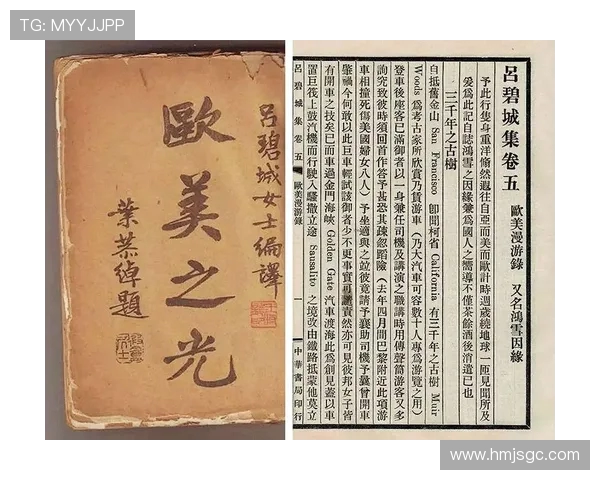 TG: MYYJJPP
呂碧城女士編譯
歐美之光
葉恭綽題
呂碧城集卷五
歐美漫游錄 又名鴻雪因緣
予此行隻身重洋翛然遐往自亞而美而歐計時週歲繞地球一匝見聞所及
爰爲此記自誌鴻雪之因緣兼爲國人之嚮導不僅茶餘酒後消遣已也
三千年之古樹
自抵舊金山 San Francisco 卽聞柯省 California 有三千年之古樹 Muir
Woods 爲考古家所欣賞乃賃游車（乃大汽車可容數十人專爲游覽之用）
登車後座客已滿御者以一身兼任司機及講演之職講時用傳聲筒游客又多
詢究致彼時須回首作答予甚恐其疎忽蹈險（去年四月間巴黎附近此項游
車相撞死傷美國婦女八人）予坐適與之竝彼竟請予襄助司機予曩曾開車
肇禍今何敢以此巨車輕試該御者少不更事實可譴責然亦可見彼邦女子皆
有開車之技矣已而車過金門海峽 Golden Gate 汽車渡海此爲創見蓋以車
置巨筏上鼓汽機而行駛入騷撒立途 Sausalito 之境改由鐵路抵蒙他莫立
呂碧城集 卷五 歐美漫游錄
一
中華書局印行
www.hmjsgc.com